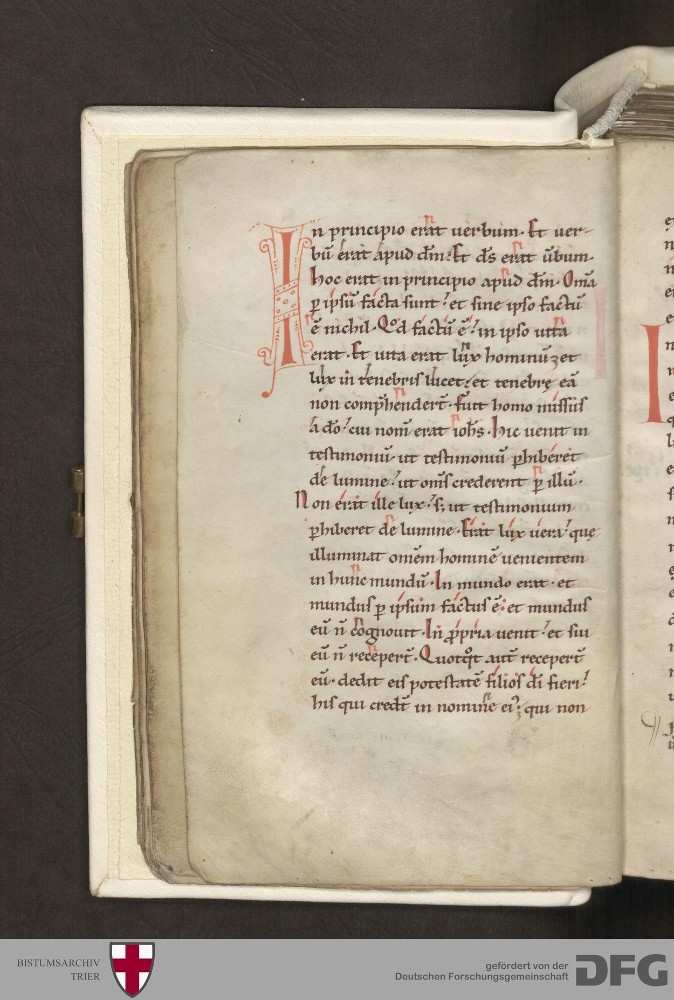 In principio erat uerbum. Et uer-
bū erat apud dm̄. Et ds̄ erat ūbum.
hoc erat in principio apud dm̄. Om̄a
ꝑ ipsū facta sunt. et sine ipso factū
ē nichil. Qd factū ē. in ipso uita
erat. Et uita erat lux hominū. et
lux in tenebris lucet. et tenebrę eā
non comp̄hendert̄. Fuit homo missus
a dō. cui nom̄ erat ioh̄s. hic uenit in
testimoniū. ut testimoniū ꝑhiberet
de lumine. ut om̄s crederent ꝑ illū.
Non erat ille lux. s; ut testimonium
ꝑhiberet de lumine. Erat lux uera. quę
illuminat omēm hominē uenientem
in hunc mundū. In mundo erat. et
mundus ꝑ ipsum factus ē. et mundus
eū n̄ cognouit. In ꝓpria uenit. et sui
eū n̄ receꝑert̄. Quotqt aut̄ recepert̄
eū. dedit eis potestatē filios di fieri.
his qui credt̄ in nomine ei'. qui non
BISTUMSARCHIV
TRIER
gefördert von der
Deutschen Forschungsgemeinschaft
DFG